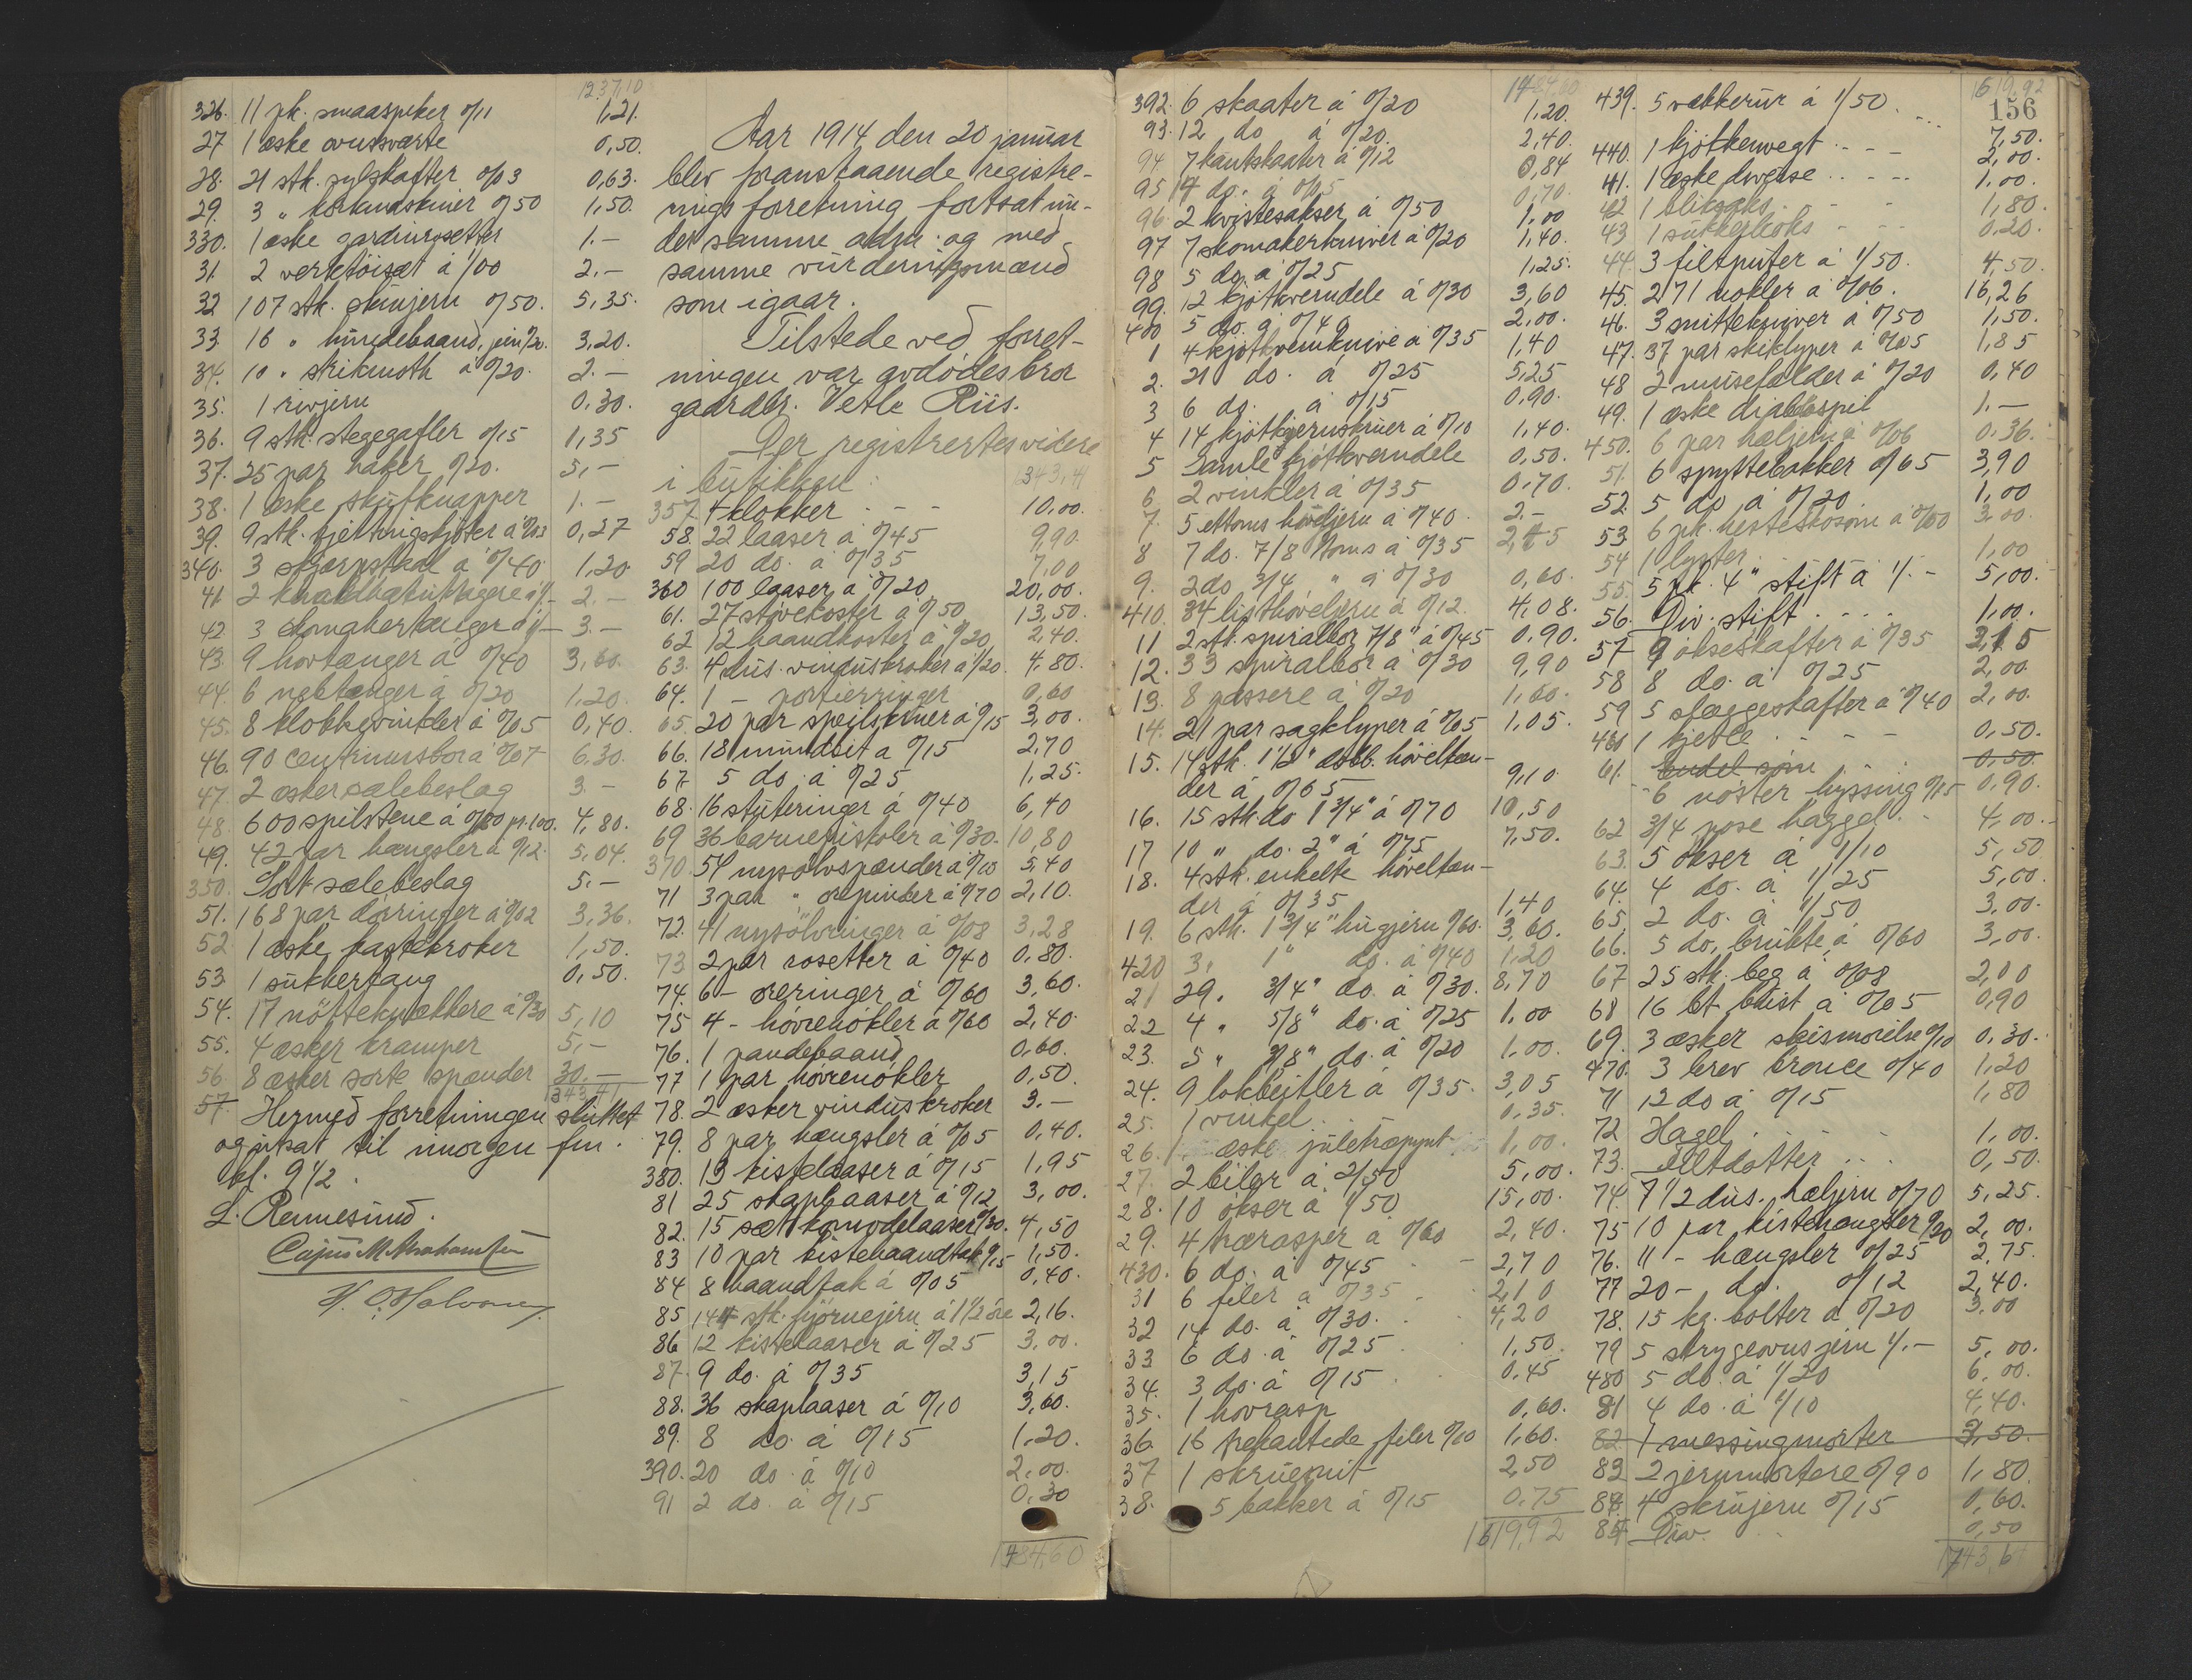 1237,10
326. 11 pk. smaaspiker 0/11 1,21.
27 1 æske ovnssværte 0,50.
28. 21 stk. sylskafter 0/03 0,63.
29. 3 " 0/50 1,50.
330. 1 æske gardinrosetter 1.–
31. 2 verktöisæt á 1/00 2.–
32 107 stk. 0/50. 5,35.
33 16 " hundebaand, 0/20. 3,20.
34. 10 " á 0/20. 2.–
35. 1 rivjern 0,30.
36. 9 stk. stegegafler 0/15 1,35
37. 25 par haker 0/20. 5,–
38. 1 æske skuffknapper 1.–
39. 9 stk. á 0/03 0,27
340. 3 á 0/40 1,20
41 2 á 1/– 2.–
42 3 skomakertænger á 1/– 3.–
43. 9 hovtænger á 0/40 3,60.
44. 6 á 0/20 1,20.
45. 8 á 0/05 0,40.
46. 90 centrumsbor á 0/07 6.30.
47. 2 æsker sælebeslag 3.–
48. 600 spilstene á 0/80 pr. 100. 4,80.
49. 42 par hængsler á 0/12. 5,04.
350. Sort sælebeslag 5.–
51. 168 par dörringer á 0/02 3,36.
52 1 æske hattekroker 1,50.
53 1 sukkertang 0,50.
54. 17 nötteknækkere á 0/30 5,10
55. 4 æsker kramper 5,–
56. 8 æsker sorte spænder 30.–
1343,41
57. Hermed forretningen sluttet
og utsat til imorgen fm.
kl. 9 1/2.
L. Rennesund.
Aar 1914 den 20 januar
blev foranstaaende registre-
ringsforretning fortsat un-
der samme adm. og med
samme vurderingsmænd
som igaar.
Tilstede ved forret-
ningen var avdödes bror
gaardbr. Vetle Riis.
Der registrertes videre
i butikken: 1343,41
357. 4 klokker - - - 10,00.
58. 22 laaser á 0/45 9,90.
59 20 do. á 0/35 7,00
360 100 laaser á 0/20 20,00.
61. 27 stövekoster á 0/50 13,50.
62 12 haandkoster á 0/20 2,40.
63. 4 dus. vinduskroker á 1/20. 4,80.
64. 1 – portierringer 0,60
65. 20 par speilskruer á 0/15 3,00.
66. 18 mundbit á 0/15 2,70
67. 5 do. á 0/25 1,25.
68. 16 stuteringer á 0/40 6,40
69 36 barnepistoler á 0/30. 10,80
370. 54 nysölvspænder á 0/10 5,40
71 3 par " örepinder á 0/70 2,10.
72. 41 nysölvringer á 0/08 3,28
73 2 par rosetter á 0/40 0,80.
74. 6 – öreringer á 0/60 3,60.
75 4 – hövrenökler á 0/60 2,40.
76. 1 pandebaand 0,60.
77 1 par hövrenökler 0,50.
78. 2 æsker vinduskroker 3.–
79. 8 par hængsler á 0/05 0,40.
380. 13 kistelaaser á 0/15 1,95
81 25 skaplaaser á 0/12 3,00.
82. 15 sæt komodelaaser 0/30. 4,50
83 10 par kistehaandtak 0/15 1,50.
84 8 haandtak á 0/05 0,40.
85 144 stk. hjörnejern á 1 1/2 öre 2,16.
86 12 kistelaaser á 0/25 3,00.
87. 9 do. á 0/35 3,15
88. 36 skaplaaser á 0/10 3,60.
89. 8 do. á 0/15 1,20.
390. 20 do. á 0/10 2,00.
91 2 do. á 0/15 0,30
1484,60
392. 6 skaater á 0/20 1,20.
93. 12 do á 0/20. 2,40.
94 7 kantskaater á 0/12 0,84
95 14 do. á 0/05 0,70.
96. 2 kvistesakser á 0/50 1,00
97 7 skomakerkniver á 0/20 1,40.
98 5 do. á 0/25 1,25.
99. 12 kjötkverndele á 0/30 3,60
400 5 do. á 0/40 2,00.
1 4 kjötkvernknive á 0/35 1,40
2. 21 do. á 0/25 5,25
3 6 do. á 0/15 0,90.
4 14 kjötkvernskruer á 0/10 1,40.
5 Samle kjötkverndele 0,50.
6. 2 vinkler á 0/35 0,70.
7. 5 ettoms hövljern á 0/40. 2,–
8 7 do. 7/8 toms á 0/35 2,45
9. 2 do 3/4 " á 0/30 0,60.
410. 34 listhövljern á 0/12. 4,08.
11 2 stk. spiralbor 7/8" á 0/45 0,90.
12. 33 spiralbor á 0/30 9,90
13. 8 passere á 0/20 1,60.
14. 21 par sagklyper á 0/05 1,05.
15. 14 stk. 1 1/2" dobb. höveltæn-
der á 0/65 9,10
16. 15 stk. do 1 3/4" á 0/70 10,50
17 10 " do. 2" á 0/75 7,50.
18. 4 stk. enkelte höveltæn-
der á 0/35 1,40
19. 6 stk. 1 3/4" hugjern 0/60. 3,60.
420 3. 1" do. á 0/40 1,20
21 29. 3/4" do. á 0/30. 8,70
22 4 " 5/8" do. á 0/25 1,00
23. 5 " 3/8" do. á 0/20 1.00.
24. 9 lokbeitler á 0/35. 3,05
25. 1 vinkel 0,35.
26. 1 æske juletræpynt 1,00.
27. 2 biler á 2/50 5,00.
28. 10 ökser á 1/50 15,00.
29. 4 trærasper á 0/60 2,40.
430. 6 do. á 0/45 2,70
31 6 filer á 0/35 2,10
32 14 do. á 0/30. 4,20
33 6 do. á 0/25 1,50.
34. 3 do. á 0/15 0,45
35. 1 hovrasp 0,60.
36. 16 trekantede filer 0/10 1,60.
37 1 skruemit 2,50
38. 5 bakker á 0/15 0,75
1619,92
1619,92
156
439. 5 vækkerur á 1/50. 7,50.
440. 1 kjökkenvegt 2,00.
41. 1 æske diverse 1,00.
42 1 bliksaks 1,80.
43 1 0,20.
44. 3 filtputer á 1/50. 4,50.
45. 271 nökler á 0/06. 16,26
46. 3 snittekniver á 0/50 1,50.
47. 37 par skiklyper á 0/05 1,85
48 2 musefælder á 0/20 0,40
49. 1 æske djabbospil 1.–
450. 6 par hæljern á 0/06 0.36.
51. 6 spyttebakker 0/65 3,90
52. 5 do á 0/20. 1,00
53 6 pk. hesteskosöm á 0/50 3,00.
54 1 lygter 1,00
55. 5 pk. 4" stift á 1/.– 5,00.
56. Div. stift 1,00.
57 9 ökseskafter á 0/35 3,15
58 8 do. á 0/25 2,00
59 5 slæggeskafter á 0/40 2,00.
460 1 kjetle 0,50.
61. Endel söm 0,50.
6 nöster hyssing 0/15 0,90.
62 3/4 pose haggel 4,00.
63. 5 ökser á 1/10 5,50
64. 4 do. á 1/25 5,00.
65. 2 do. á 1/50 3,00.
66. 5 do. brukte á 0/60 3,00.
67 25 stk. beg á 0/08 2,00
68 16 bt. blist á 0/05 0,90
69. 3 æsker skismörelse 0/10 0,30.
470. 3 brev bronce 0/40 1,20
71 12 do á 0/15 1,80
72 Hagel 1,00.
73. Filtdotter 0,50.
74. 7 1/2 dus. hæljern 0/70 5,25.
75 10 par kistehængsler 0/20 2,00.
76. 11 – hængsler 0/25 2,75.
77 20 – do. 0/12 2,40.
78. 15 kg. bolter á 0/20 3.00
79 5 strygeovnsjern 1/.– 5,00.
480 5 do. á 1/20 6,00.
81 4 do. á 1/10 4,40.
82. 1 messingmorter 3,50.
83 2 jernmortere 0/90 1,80.
84. 4 skrujern 0/15 0,60.
85 Div. 0,50
1743,61